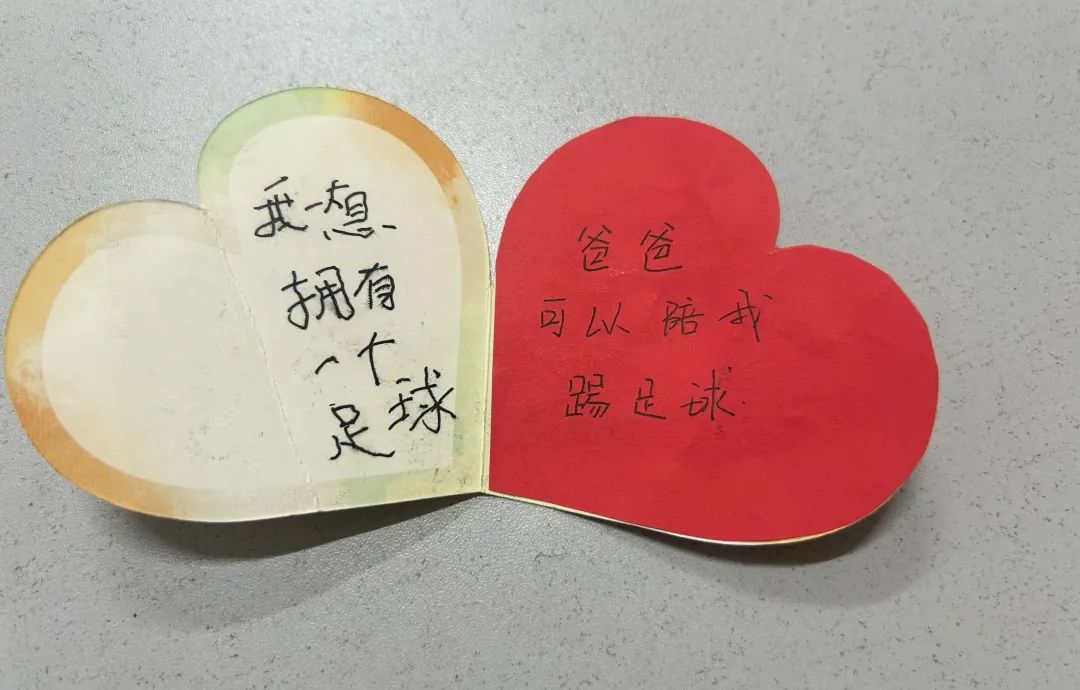 我想
拥有
一个
足球
爸爸
可以陪我
踢足球.